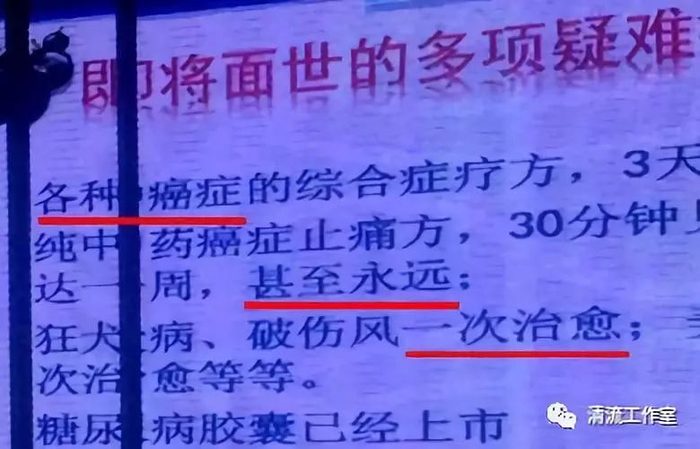 即将面世的多项疑难
各种癌症的综合症疗方，3天
纯中药癌症止痛方，30分钟
达一周，甚至永远；
狂犬病、破伤风一次治愈；
次治愈等等。
糖尿病胶囊已经上市
清流工作室